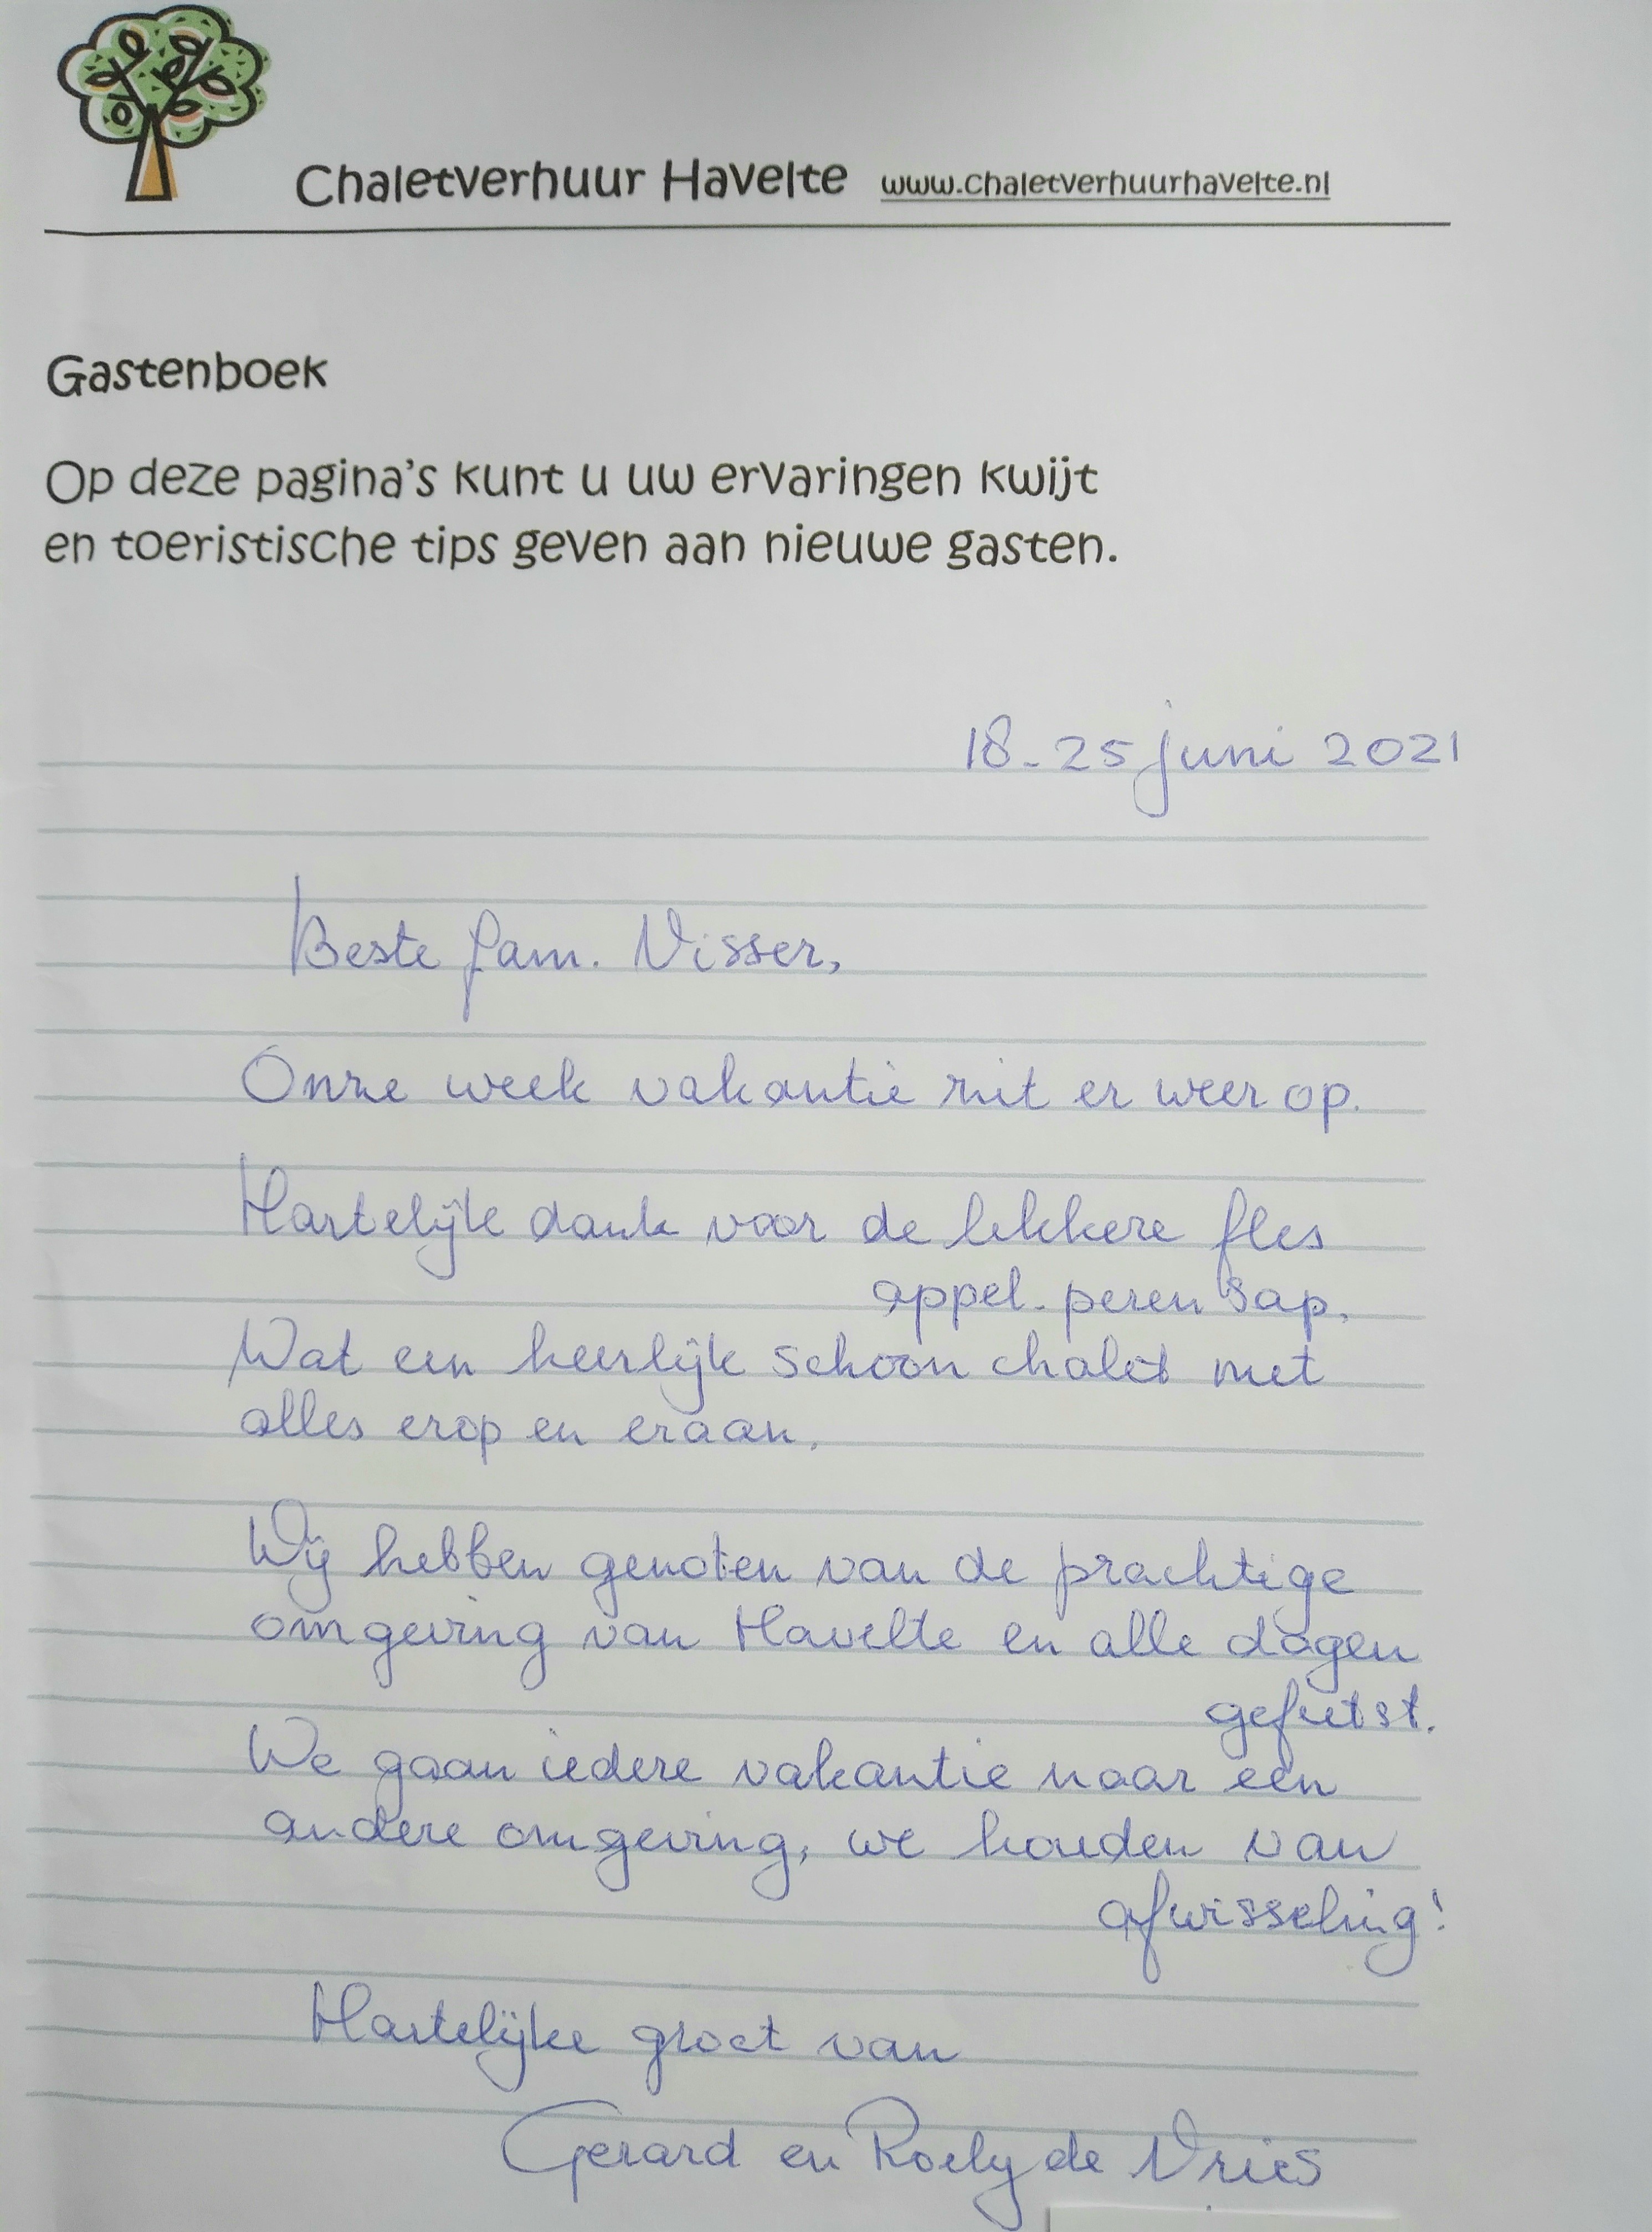 Chaletverhuur Havelte www.chaletverhuurhavelte.nl
Gastenboek
Op deze pagina's kunt u uw ervaringen kwijt
en toeristische tips geven aan nieuwe gasten.
18-25 juni 2021
Beste fam. Visser,
Onze week vakantie zit er weer op.
Hartelijk dank voor de lekkere fles
appel-peren sap.
Wat een heerlijk schoon chalet met
alles erop en eraan.
Wij hebben genoten van de prachtige
omgeving van Havelte en alle dagen
gefietst.
We gaan iedere vakantie naar een
andere omgeving, we houden van
afwisseling!
Hartelijke groet van
Gerard en Roely de Vries